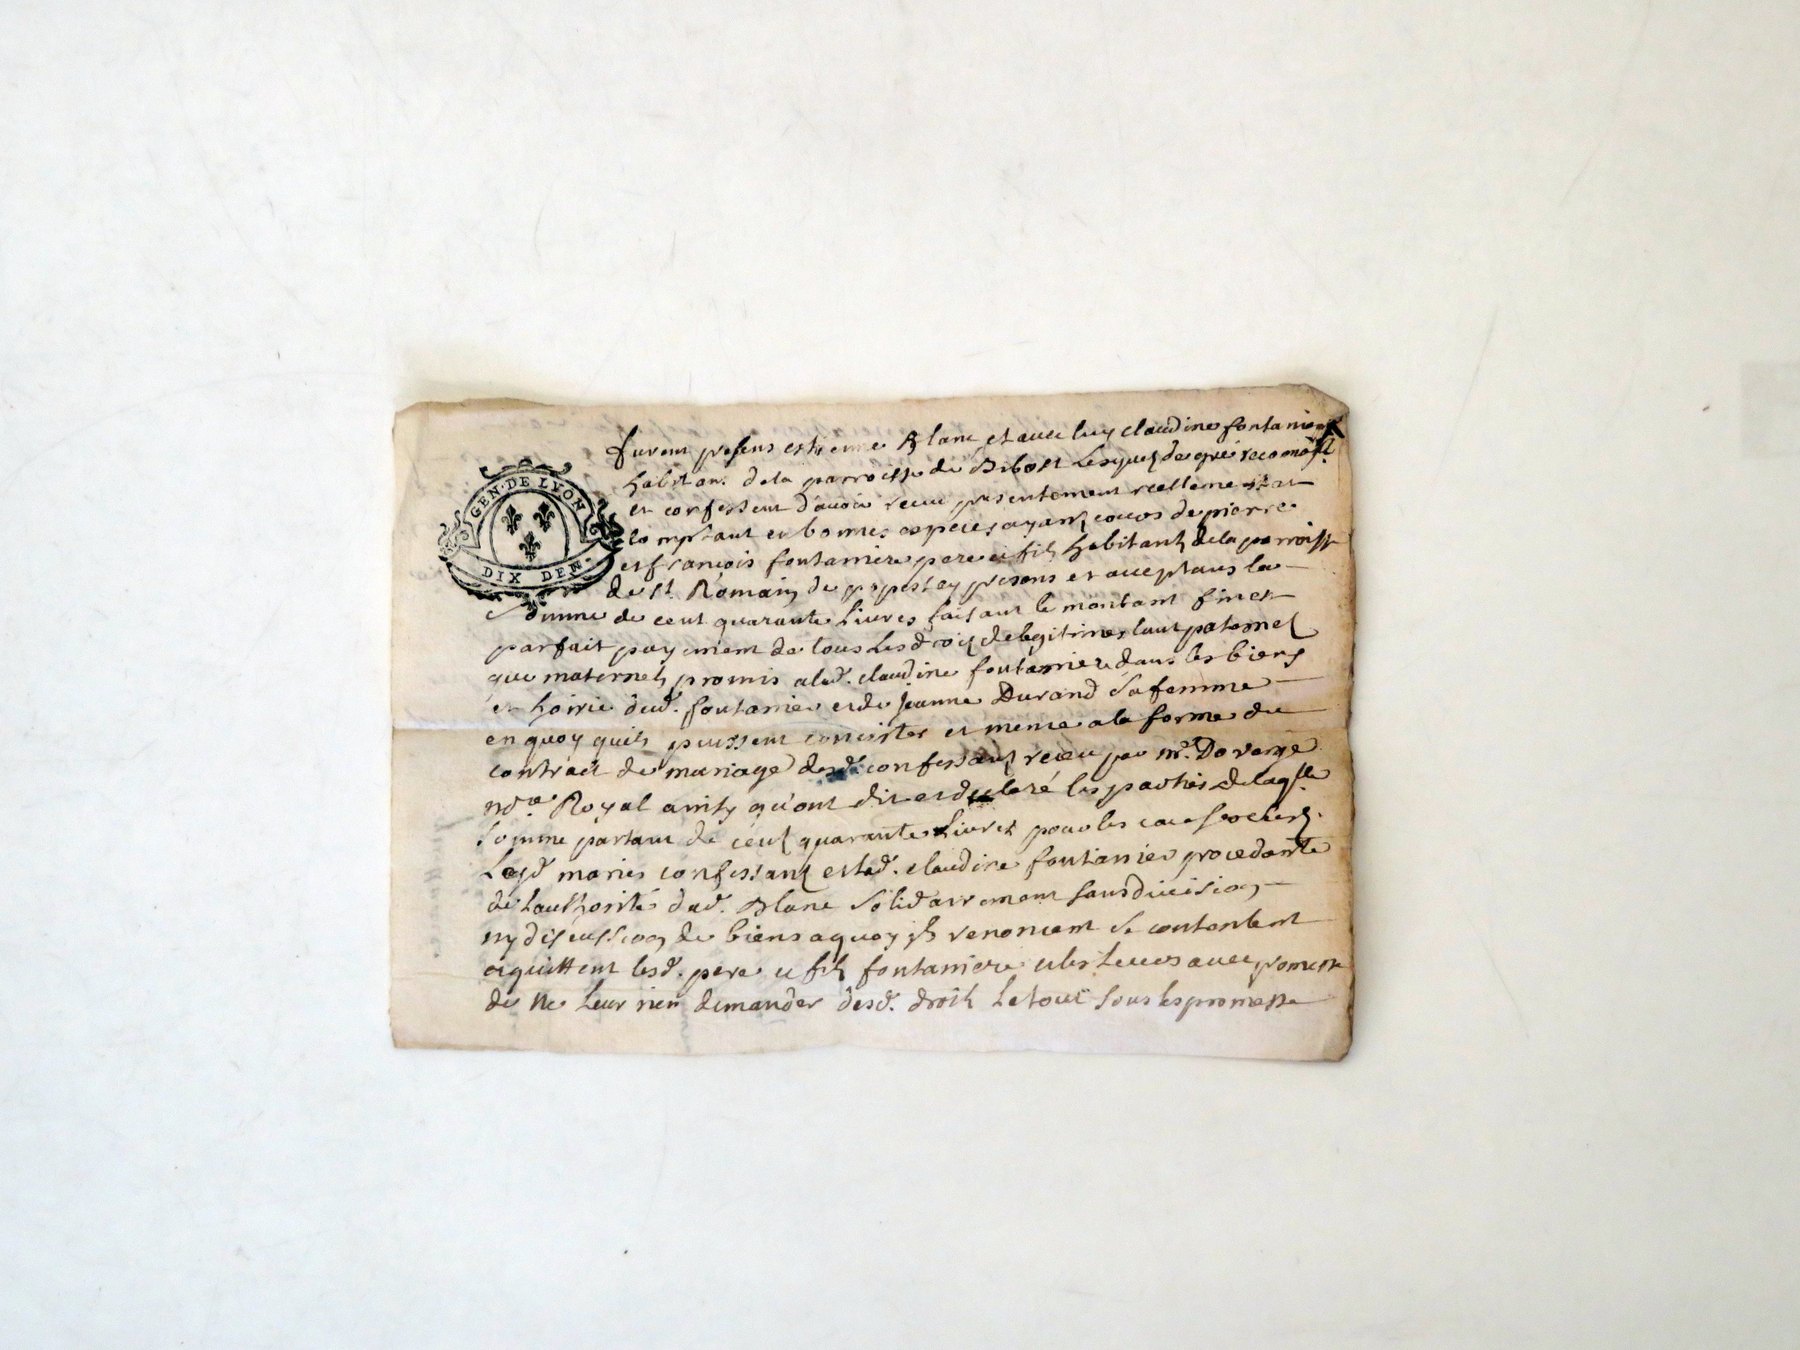 GEN · DE LYON
DIX DEN.
furent presens estienne Blanc et avec luy claudine fontaniere
habitans de la parroisse de Bibost lesquels de gré
et confessent d'avoir receu presentement reellement et
comptant en bonnes especes ayant cours de pierre
et françois fontaniere pere et fils habitants de la parroisse
de st. Romain de popey presens et acceptans la
somme de cent quarante livres faisant le montant fin et
parfait payement de tous les droits de legitimes tant paternels
que maternels promis a lad. claudine fontaniere dans les biens
et hoirie dud. fontanier et de jeanne Durand sa femme
en quoy quils puissent concister et meme a la forme du
contrait de mariage desd. confessants receu par mr. Doverge
nore. Royal ainsy qu'ont dit et declaré les parties de laqlle
somme partant de cent quarante livres pour les
Lesd mariés confessants et lad. claudine fontanier procedante
de lauthorité dud. Blanc solidairement sans division
ny discussion de biens a quoy ils renoncent se contentent
et quittent lesd. pere et fils fontaniere et les leurs avec promesse
de ne leur rien demander desd. droits Le tout sous les promesse